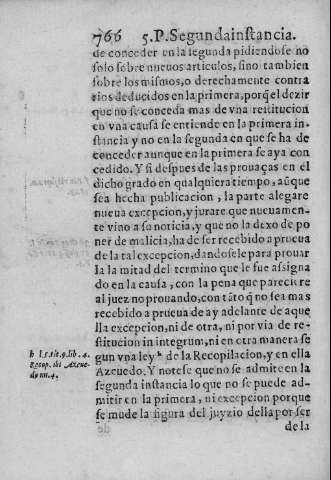 766 5.P.Segundainstancia.
de conceder en la segunda pidiendose no
solo sobre nueuos articulos, sino tambien
sobre los mismos, o derechamente contra
rios deducidos en la primera, porq̃ el dezir
que no se conceda mas de vna restitucion
en vna causa se entiende en la primera in-
stancia y no en la segunda en que se ha de
conceder aunque en la primera se aya con
cedido. Y si despues de las prouaças en el
dicho grado en qualquiera tiempo, aũque
sea hecha publicacion, la parte alegare
nueua excepcion, y jurare que nueuamen-
te vino a su noticia, y que no la dexo de po
ner de malicia, ha de ser recebido a prueua
de la tal excepcion, dandosele para prouar
la la mitad del termino que le fue assigna
do en la causa, con la pena que pareciere
al juez no prouando, con tãto q̃ no sea mas
recebido a prueua de ay adelante de aque
lla excepcion, ni de otra, ni por via de re-
stitucion in integrum, ni en otra manera se
gun vna ley h de la Recopilacion, y en ella
Azeuedo. Y notese que no se admite en la
segunda instancia lo que no se puede ad-
mitir en la primera, ni excepcion porque
se mude la figura del juyzio della por ser
de la
h l.5.tit.9.lib.4.
Recop. ibi Azeue-
do nu.4.